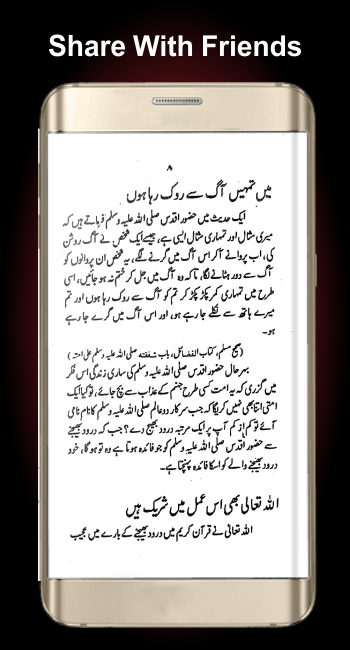 Share With Friends
۸
میں تمہیں آگ سے روک رہا ہوں
ایک حدیث میں حضور اقدس صلی اللہ علیہ وسلم فرماتے ہیں کہ
میری مثال اور تمہاری مثال ایسی ہے، جیسے ایک شخص نے آگ روشن
کی، اب پروانے آکر اس آگ میں گرنے لگے، یہ شخص ان پروانوں کو
آگ سے دور ہٹانے لگا، تاکہ وہ آگ میں جل کر ختم نہ ہو جائیں، اسی
طرح میں تمہاری کمر پکڑ پکڑ کر تم کو آگ سے روک رہا ہوں اور تم
میرے ہاتھ سے نکلے جا رہے ہو، اور اس آگ میں گرے جا رہے
ہو۔
(صحیح مسلم، کتاب الفضائل، باب شفقتہ صلی اللہ علیہ وسلم علی امتہ)
بہرحال حضور اقدس صلی اللہ علیہ وسلم کی ساری زندگی اس فکر
میں گزری کہ یہ امت کسی طرح جہنم کے عذاب سے بچ جائے، تو کیا ایک
امتی اتنا بھی نہیں کریگا کہ جب سرکار دو عالم صلی اللہ علیہ وسلم کا نام نامی
آئے تو کم از کم آپ پر ایک مرتبہ درود بھیج دے؟ جب کہ درود بھیجنے
سے حضور اقدس صلی اللہ علیہ وسلم کو جو فائدہ ہوتا ہے وہ تو ہوگا، خود
درود بھیجنے والے کو اسکا فائدہ پہنچتا ہے۔
اللہ تعالیٰ بھی اس عمل میں شریک ہیں
اللہ تعالیٰ نے قرآن کریم میں درود بھیجنے کے بارے میں عجیب